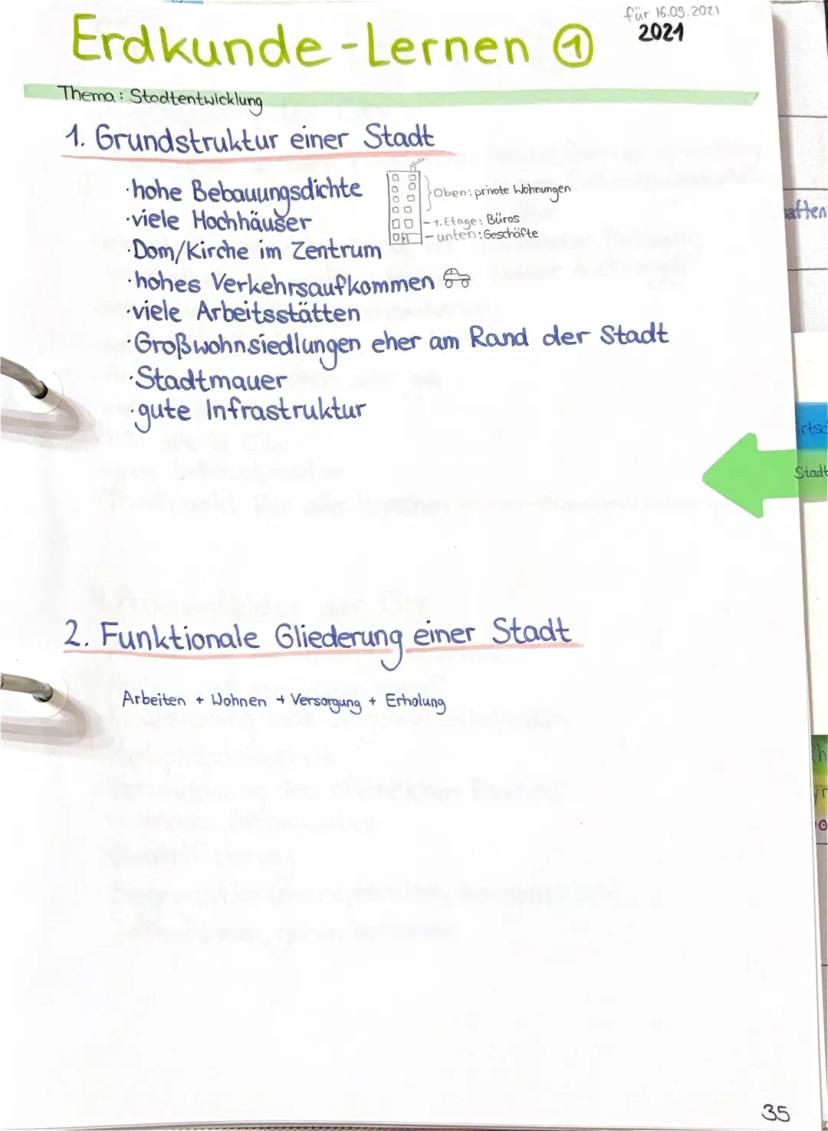 für 16.09.2021
2021
Erdkunde-Lernen ①
Thema: Stadtentwicklung
1. Grundstruktur einer Stadt
·hohe Bebauungsdichte
Oben: private Wohnungen
·viele Hochhäuser
-1. Etage: Büros
-unten: Geschäfte
·Dom/Kirche im Zentrum
·hohes Verkehrsaufkommen
·viele Arbeitsstätten
·Großwohnsiedlungen eher am Rand der Stadt
·Stadtmauer
·gute Infrastruktur
Stadt
2. Funktionale Gliederung einer Stadt
Arbeiten + Wohnen + Versorgung + Erholung
35